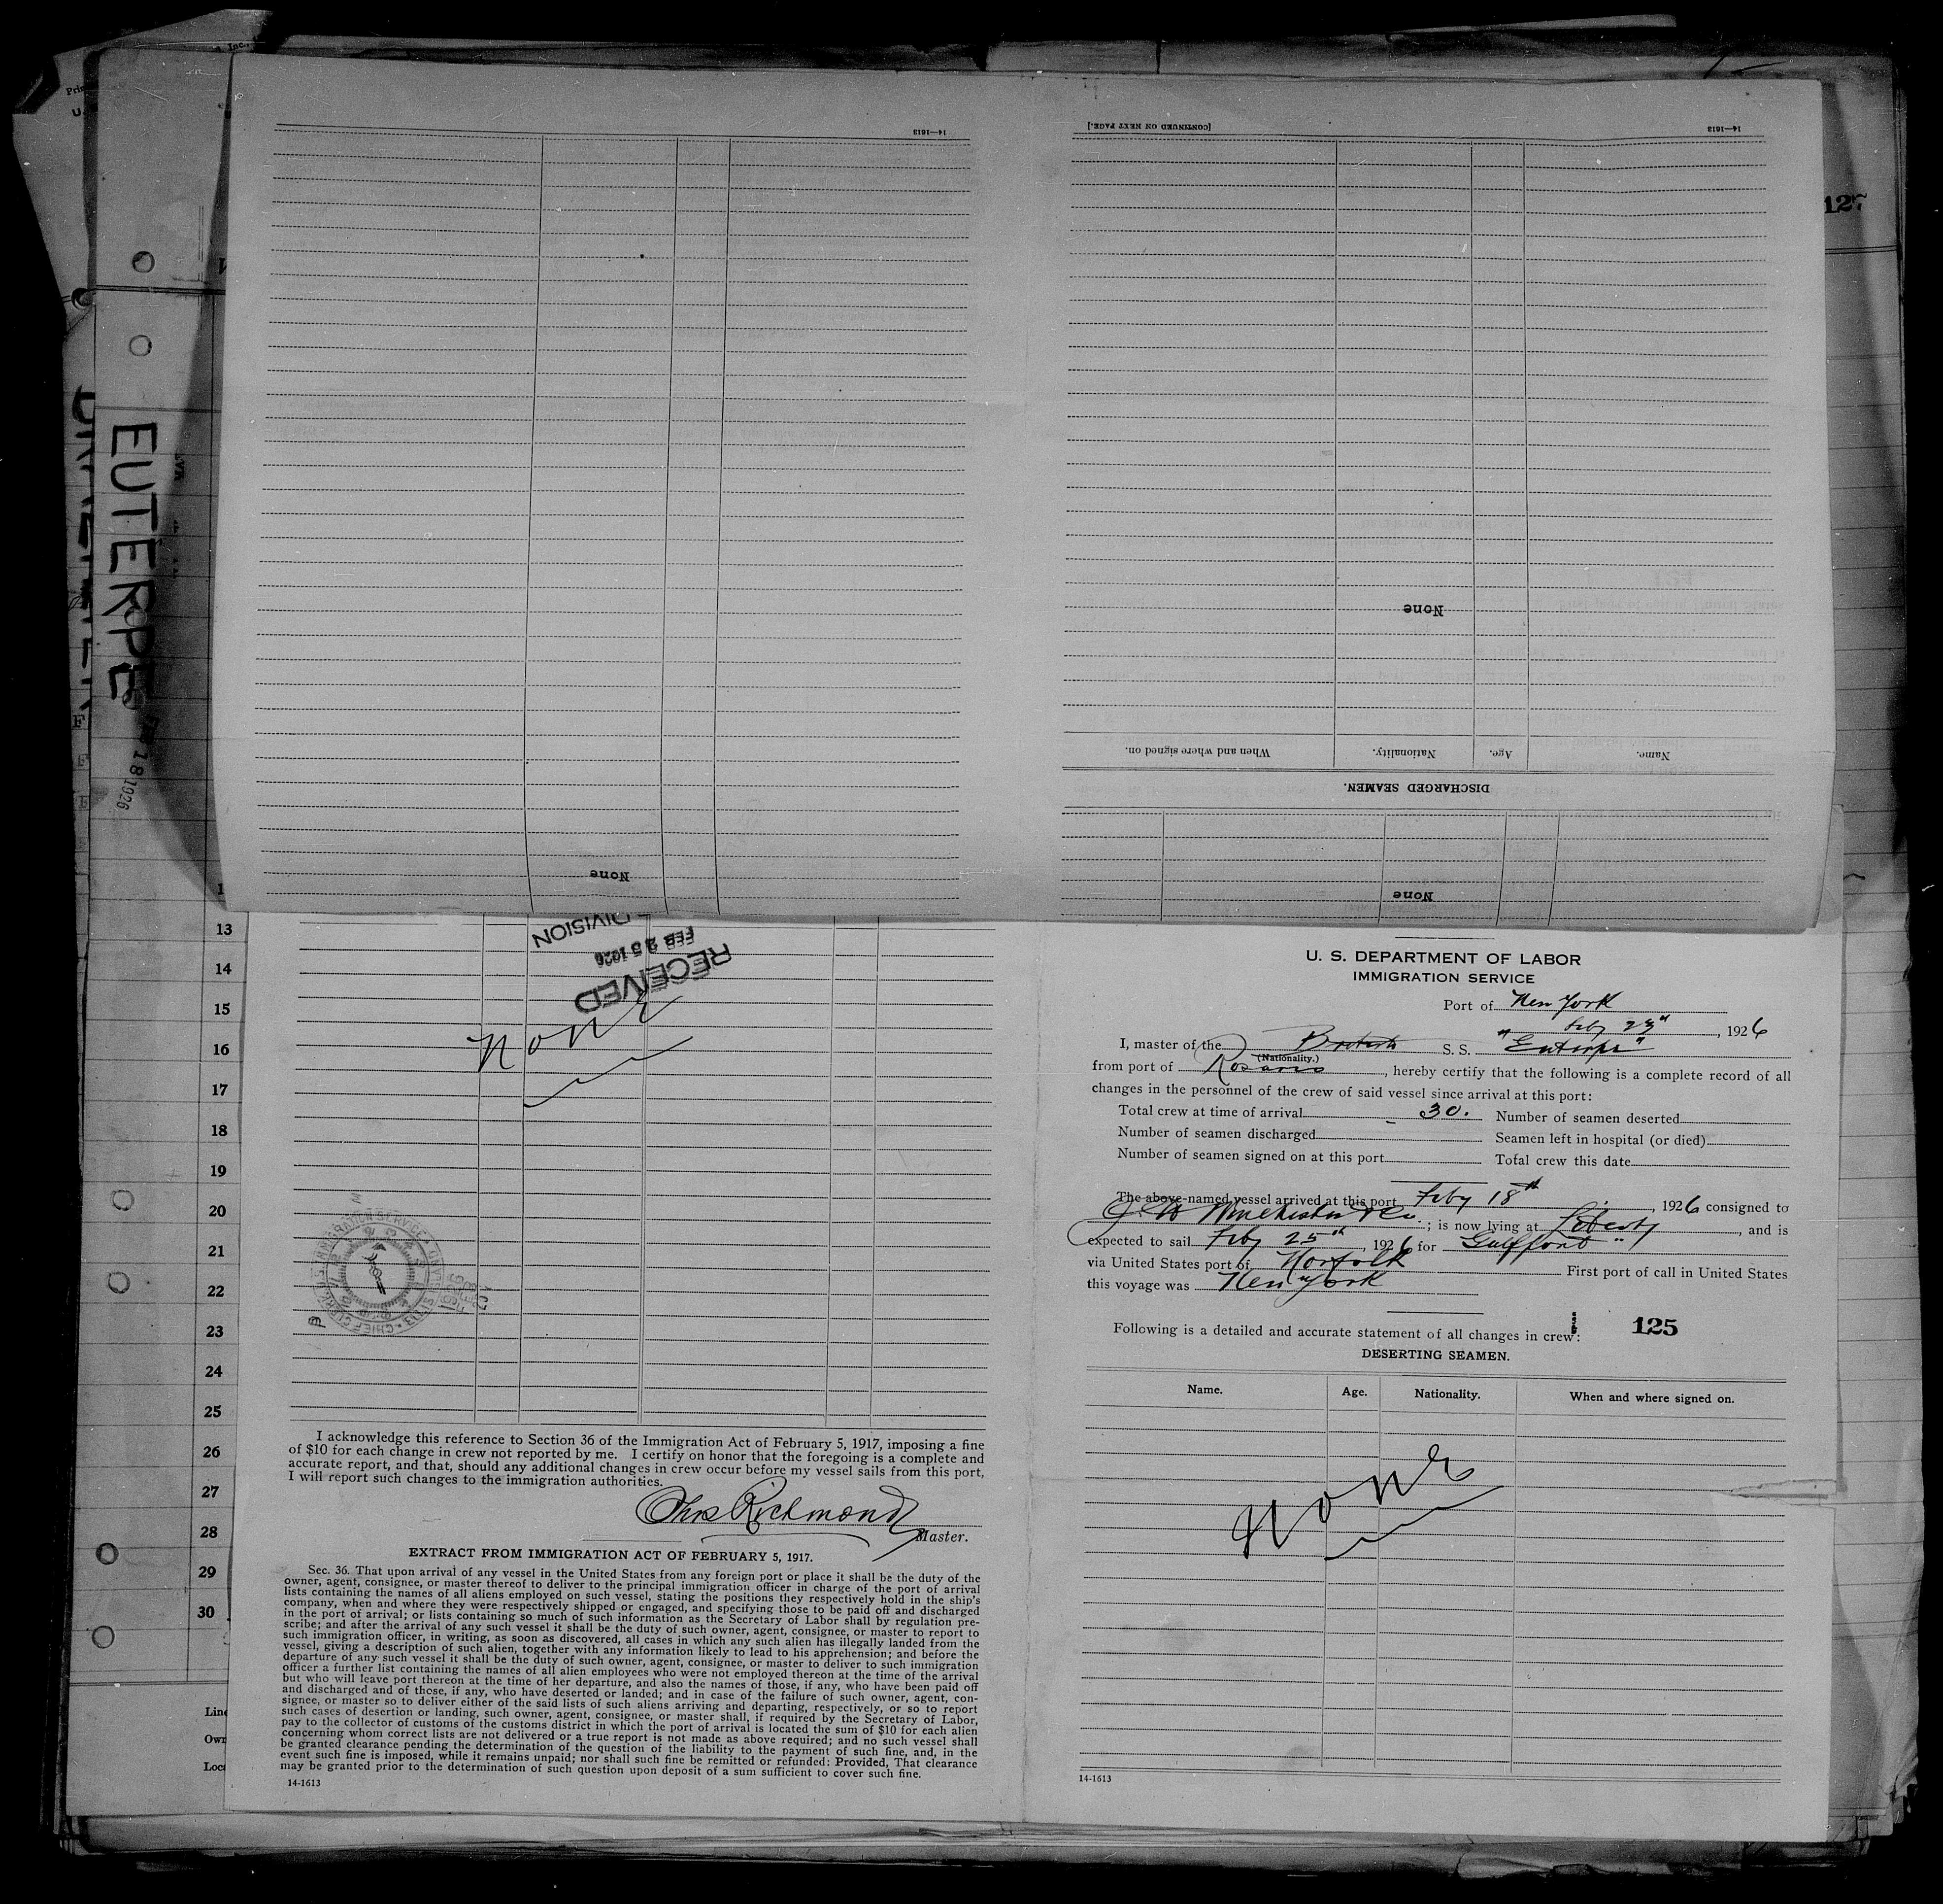 14—1613
[CONTINUED ON NEXT PAGE.]
14—1613
127
EUTERPE
18 1926
None
When and where signed on.
Nationality.
Age.
Name.
DISCHARGED SEAMEN.
None
None
DIVISION
FEB 25 1926
RECEIVED
None
13
14
15
16
17
18
19
20
21
22
23
24
25
26
27
28
29
30
I acknowledge this reference to Section 36 of the Immigration Act of February 5, 1917, imposing a fine
of $10 for each change in crew not reported by me. I certify on honor that the foregoing is a complete and
accurate report, and that, should any additional changes in crew occur before my vessel sails from this port,
I will report such changes to the immigration authorities.
Thos Richmond
Master.
EXTRACT FROM IMMIGRATION ACT OF FEBRUARY 5, 1917.
Sec. 36. That upon arrival of any vessel in the United States from any foreign port or place it shall be the duty of the
owner, agent, consignee, or master thereof to deliver to the principal immigration officer in charge of the port of arrival
lists containing the names of all aliens employed on such vessel, stating the positions they respectively hold in the ship's
company, when and where they were respectively shipped or engaged, and specifying those to be paid off and discharged
in the port of arrival; or lists containing so much of such information as the Secretary of Labor shall by regulation pre-
scribe; and after the arrival of any such vessel it shall be the duty of such owner, agent, consignee, or master to report to
such immigration officer, in writing, as soon as discovered, all cases in which any such alien has illegally landed from the
vessel, giving a description of such alien, together with any information likely to lead to his apprehension; and before the
departure of any such vessel it shall be the duty of such owner, agent, consignee, or master to deliver to such immigration
officer a further list containing the names of all alien employees who were not employed thereon at the time of the arrival
but who will leave port thereon at the time of her departure, and also the names of those, if any, who have been paid off
and discharged and of those, if any, who have deserted or landed; and in case of the failure of such owner, agent, con-
signee, or master so to deliver either of the said lists of such aliens arriving and departing, respectively, or so to report
such cases of desertion or landing, such owner, agent, consignee, or master shall, if required by the Secretary of Labor,
pay to the collector of customs of the customs district in which the port of arrival is located the sum of $10 for each alien
concerning whom correct lists are not delivered or a true report is not made as above required; and no such vessel shall
be granted clearance pending the determination of the question of the liability to the payment of such fine, and, in the
event such fine is imposed, while it remains unpaid; nor shall such fine be remitted or refunded: Provided, That clearance
may be granted prior to the determination of such question upon deposit of a sum sufficient to cover such fine.
14-1613
U. S. DEPARTMENT OF LABOR
IMMIGRATION SERVICE
Port of New York
Feby 23rd, 1926
I, master of the British S. S. "Euterpe"
(Nationality.)
from port of Rosario, hereby certify that the following is a complete record of all
changes in the personnel of the crew of said vessel since arrival at this port:
Total crew at time of arrival 30. Number of seamen deserted
Number of seamen discharged - Seamen left in hospital (or died)
Number of seamen signed on at this port Total crew this date
The above-named vessel arrived at this port Feby 18th, 1926 consigned to
J. W. Winchester & Co.; is now lying at Liberty, and is
expected to sail Feby 25th, 1926 for Gulfport
via United States port of Norfolk First port of call in United States
this voyage was New York
Following is a detailed and accurate statement of all changes in crew:
125
DESERTING SEAMEN.
Name. Age. Nationality. When and where signed on.
None
14-1613